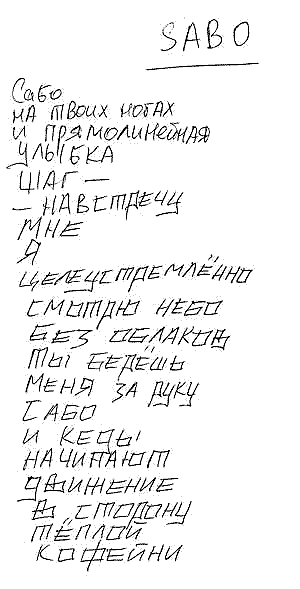 SABO
Сабо
на твоих ногах
и прямолинейная
улыбка
шаг —
— навстречу
мне
я
целеустремлённо
смотрю небо
без облаков
ты берёшь
меня за руку
сабо
и кеды
начинают
движение
в сторону
тёплой
кофейни